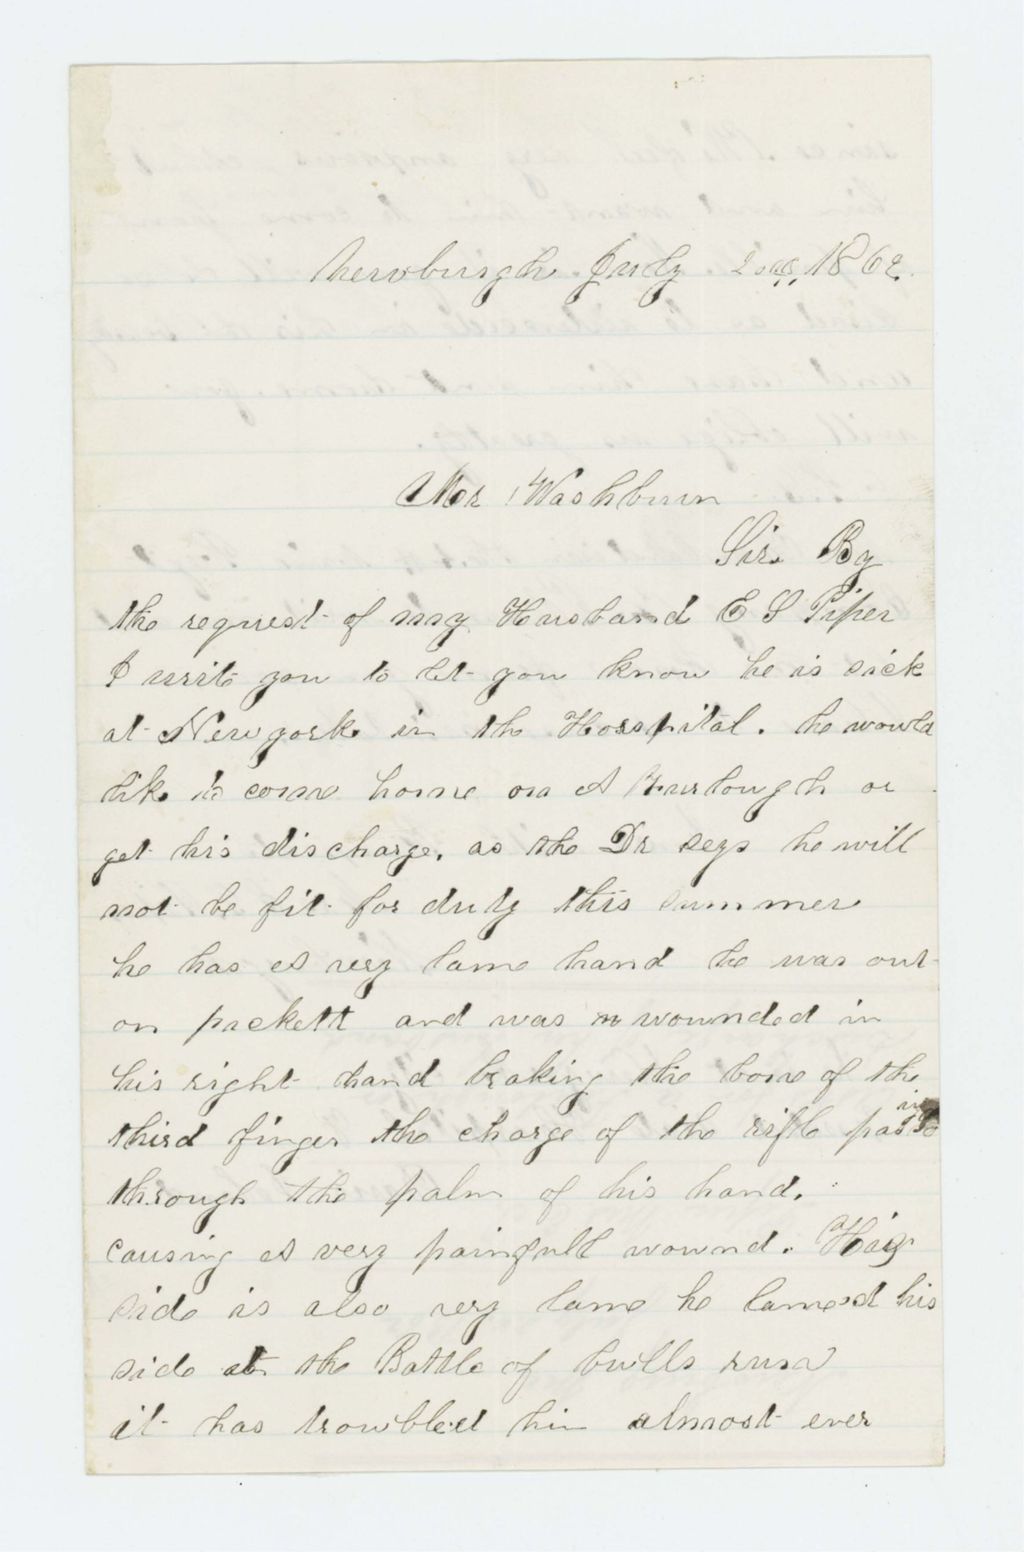 Newburgh July 2nd, 1862.
Mr Washburn
Sir. By
the request of my Husband E S Piper
I write you to let you know he is sick
at New york in the Hosspital. he would
like to come home on A Furlough or
get his discharge. as the Dr seys he will
not be fit for duty this summer
he has A very lame hand he was out
on packett and was wounded in
his right hand braking the bone of the
third finger the charge of the rifle passing
through the palm of his hand.
causing A very painfull wound. His
side is also very lame he lamed his
side at the Battle of bulls run
it has troubled him almost ever